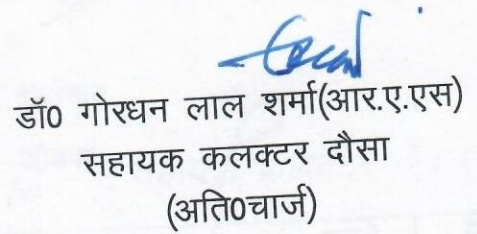 डॉ0 गोरधन लाल शर्मा(आर.ए.एस)
सहायक कलक्टर दौसा
(अति0चार्ज)